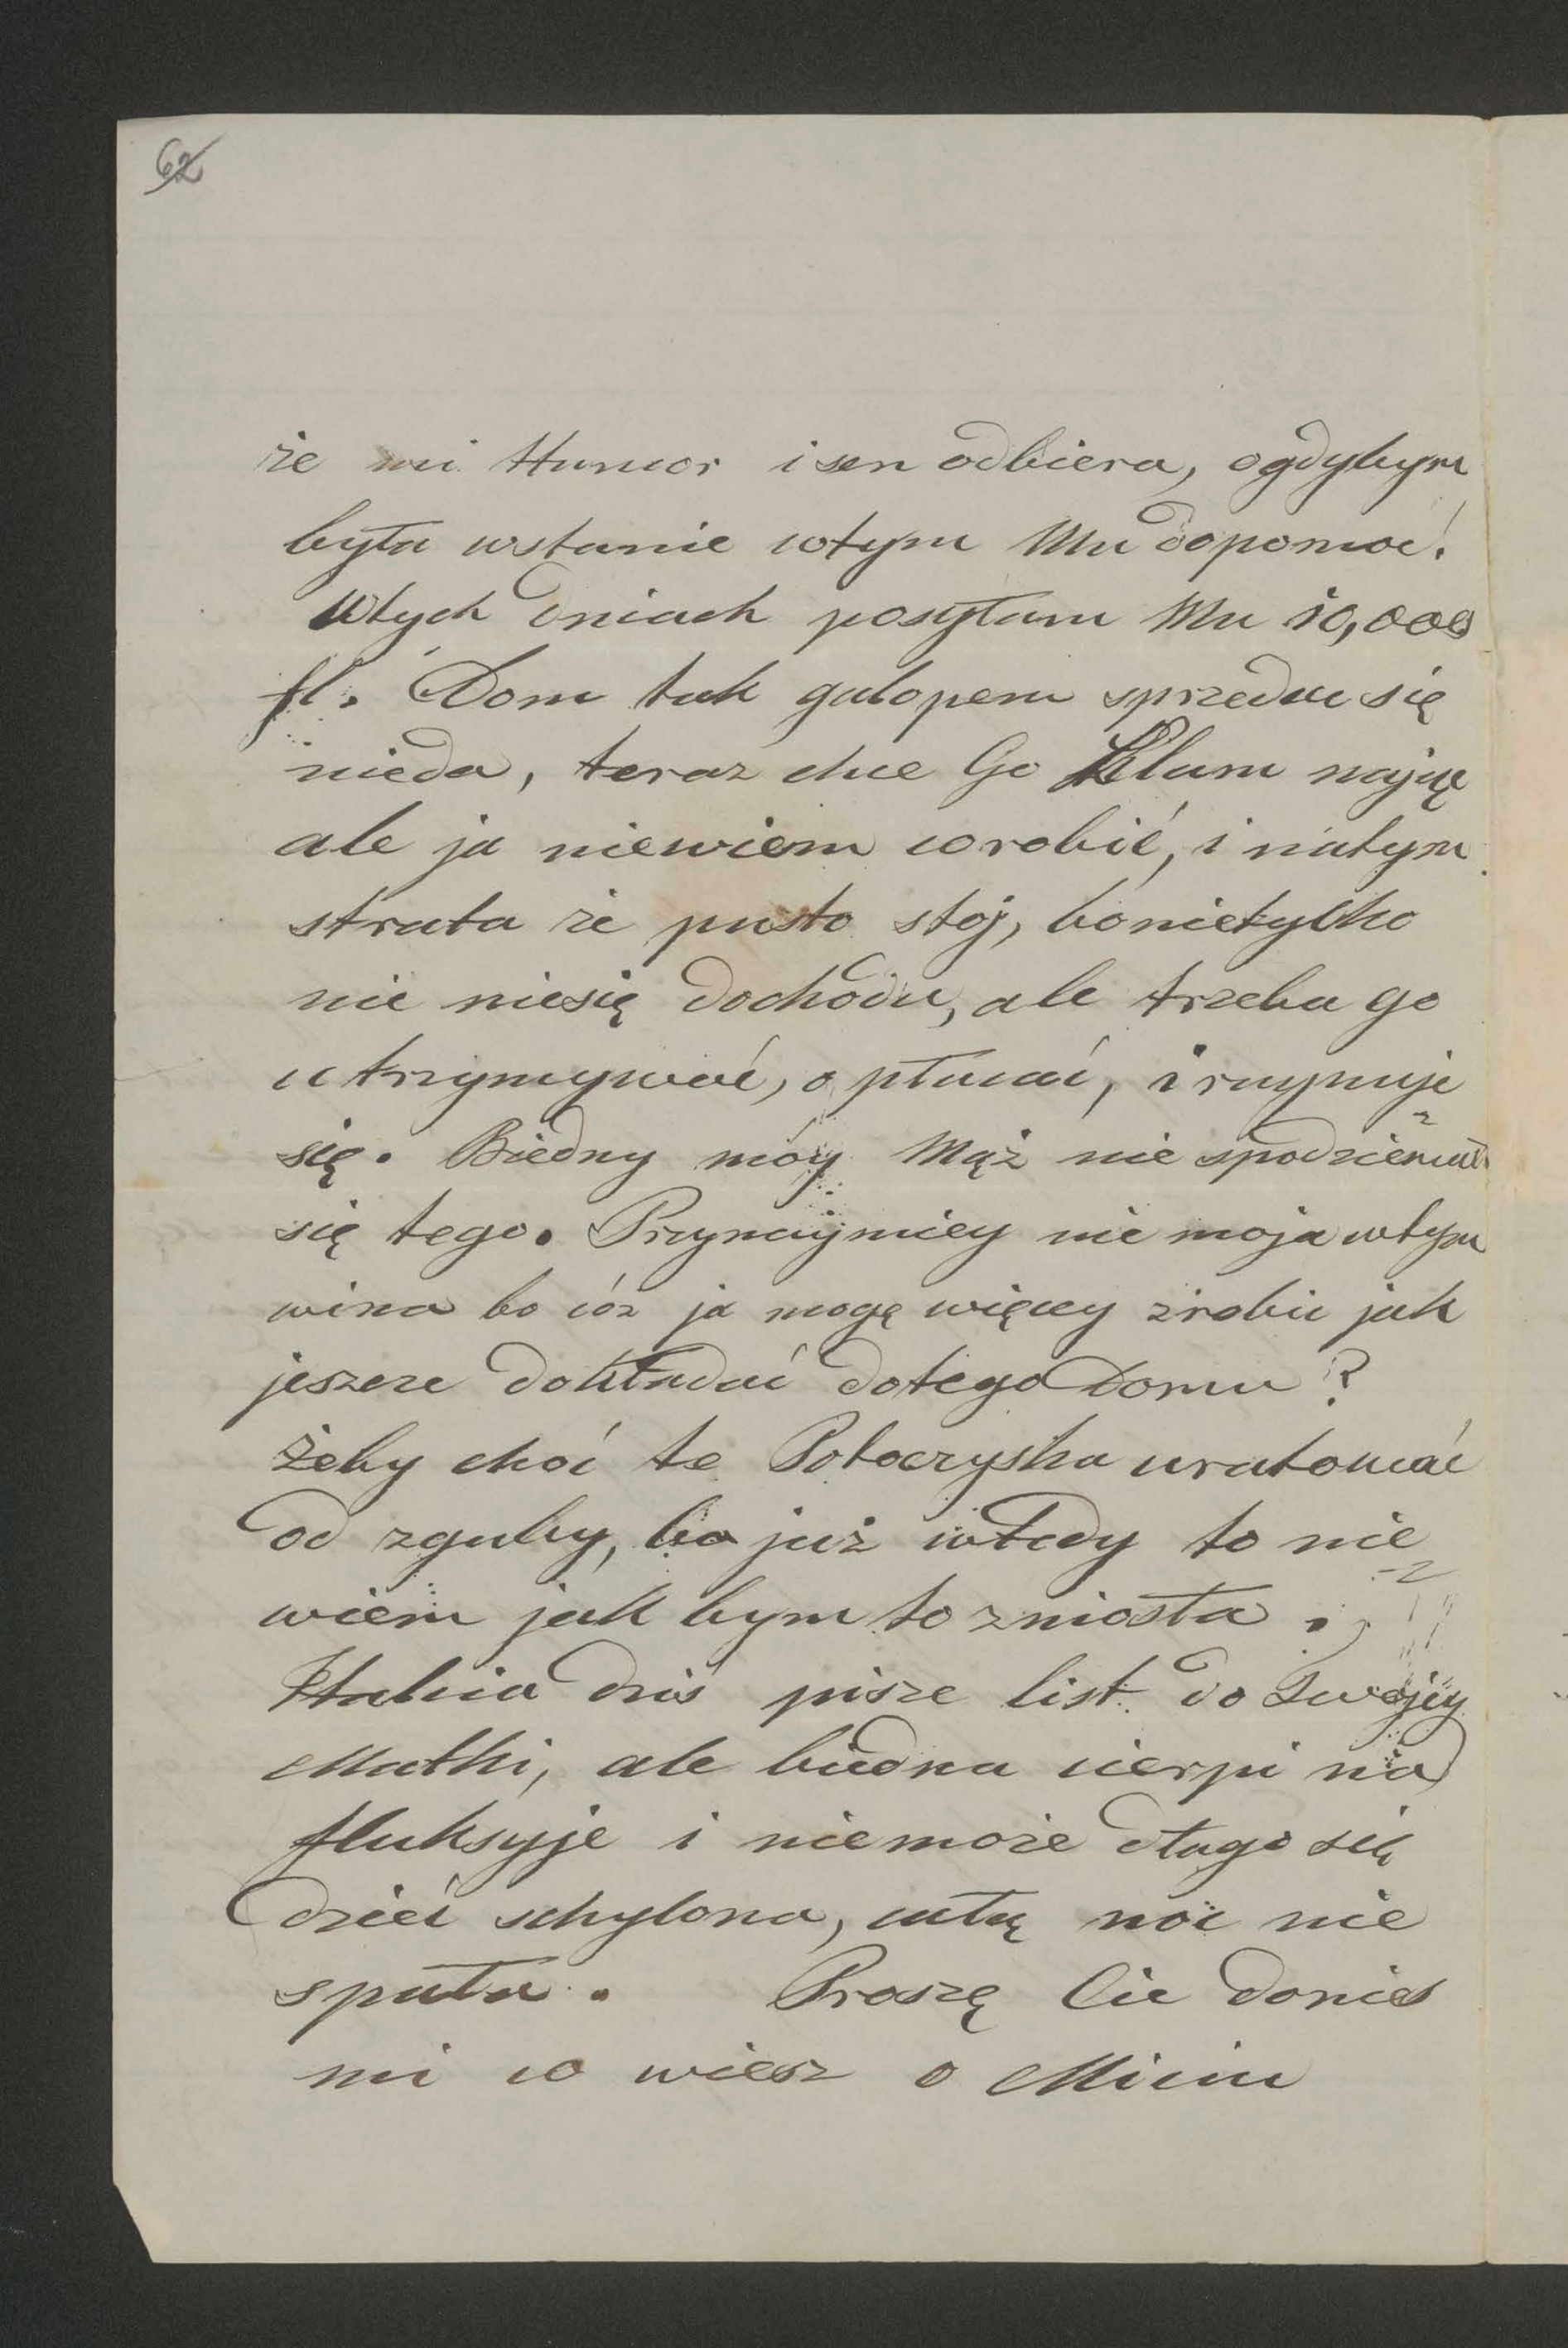 62
że mi Humor i sen odbiera, ogdybym
była wstanie wtym Mu dopomoć!
Wtych dniach posyłam Mu 10,000
fl. Dom tak galopem sprzedac się
nieda, teraz chce Go Klam nająć
ale ja niewiem co robić, i natym
strata że pusto stoj, bonietylko
nie niesię dochodu, ale trzeba go
utrzymywać, opłacać, i rujnuje
się. Biedny móy Mąż nie spodziewał
się tego. Przynaymniey nie moja wtym
wina bo cóż ja mogę więcey zrobic jak
jeszcze dokładać dotego Domu?
żeby choć te Potoczyska uratować
od zguby, bo już wtedy to nie
wiem jak bym to zniosła.
Halcia dziś pisze list do Swojey
Matki, ale biedna cierpi na
fluksyje i niemoże długo sie
dzieć schylona, całą noc nie
spała. Proszę Cie donies
mi co wiesz o Miciu